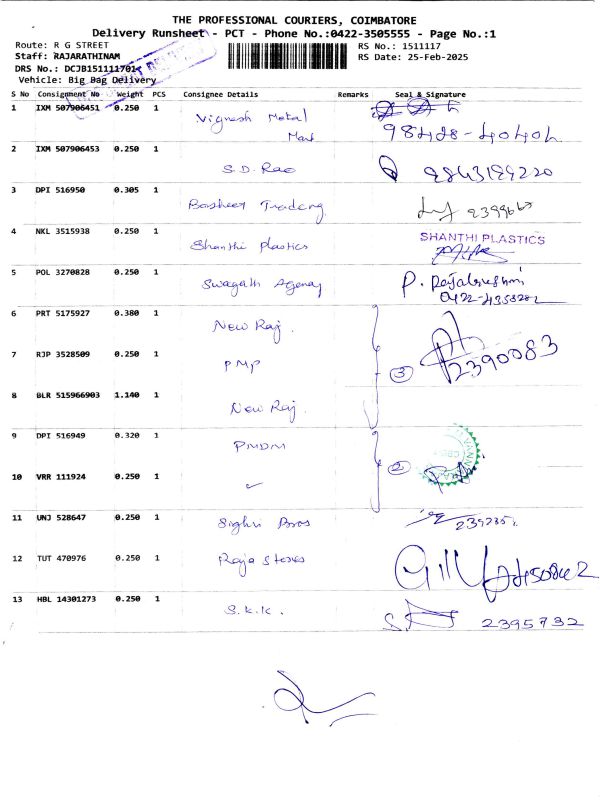 THE PROFESSIONAL COURIERS, COIMBATORE
Delivery Runsheet - PCT - Phone No.:0422-3505555 - Page No.:1
Route: R G STREET
RS No.: 1511117
Staff: RAJARATHINAM
RS Date: 25-Feb-2025
DRS No.: DCJB151111701
Vehicle: Big Bag Delivery
S No Consignment No Weight PCS Consignee Details Remarks Seal & Signature
1 IXM 507906451 0.250 1 Vignesh Metal Mart 98428-40404
2 IXM 507906453 0.250 1 S.D. Rao 9843189220
3 DPI 516950 0.305 1 Basheer Trading
4 NKL 3515938 0.250 1 Shanthi Plastics SHANTHI PLASTICS
5 POL 3270828 0.250 1 Swagath Agency P. Rajalakshmi
6 PRT 5175927 0.380 1 New Raj.
7 RJP 3528509 0.250 1 PMP 3 2390083
8 BLR 515966903 1.140 1 New Raj.
9 DPI 516949 0.320 1 PMDM
10 VRR 111924 0.250 1 2
11 UNJ 528647 0.250 1 Bros
12 TUT 470976 0.250 1 Raja Stores
13 HBL 14301273 0.250 1 S.K.K. 2395732